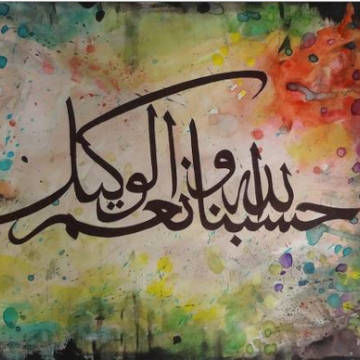 حسبنا الله ونعم الوكيل